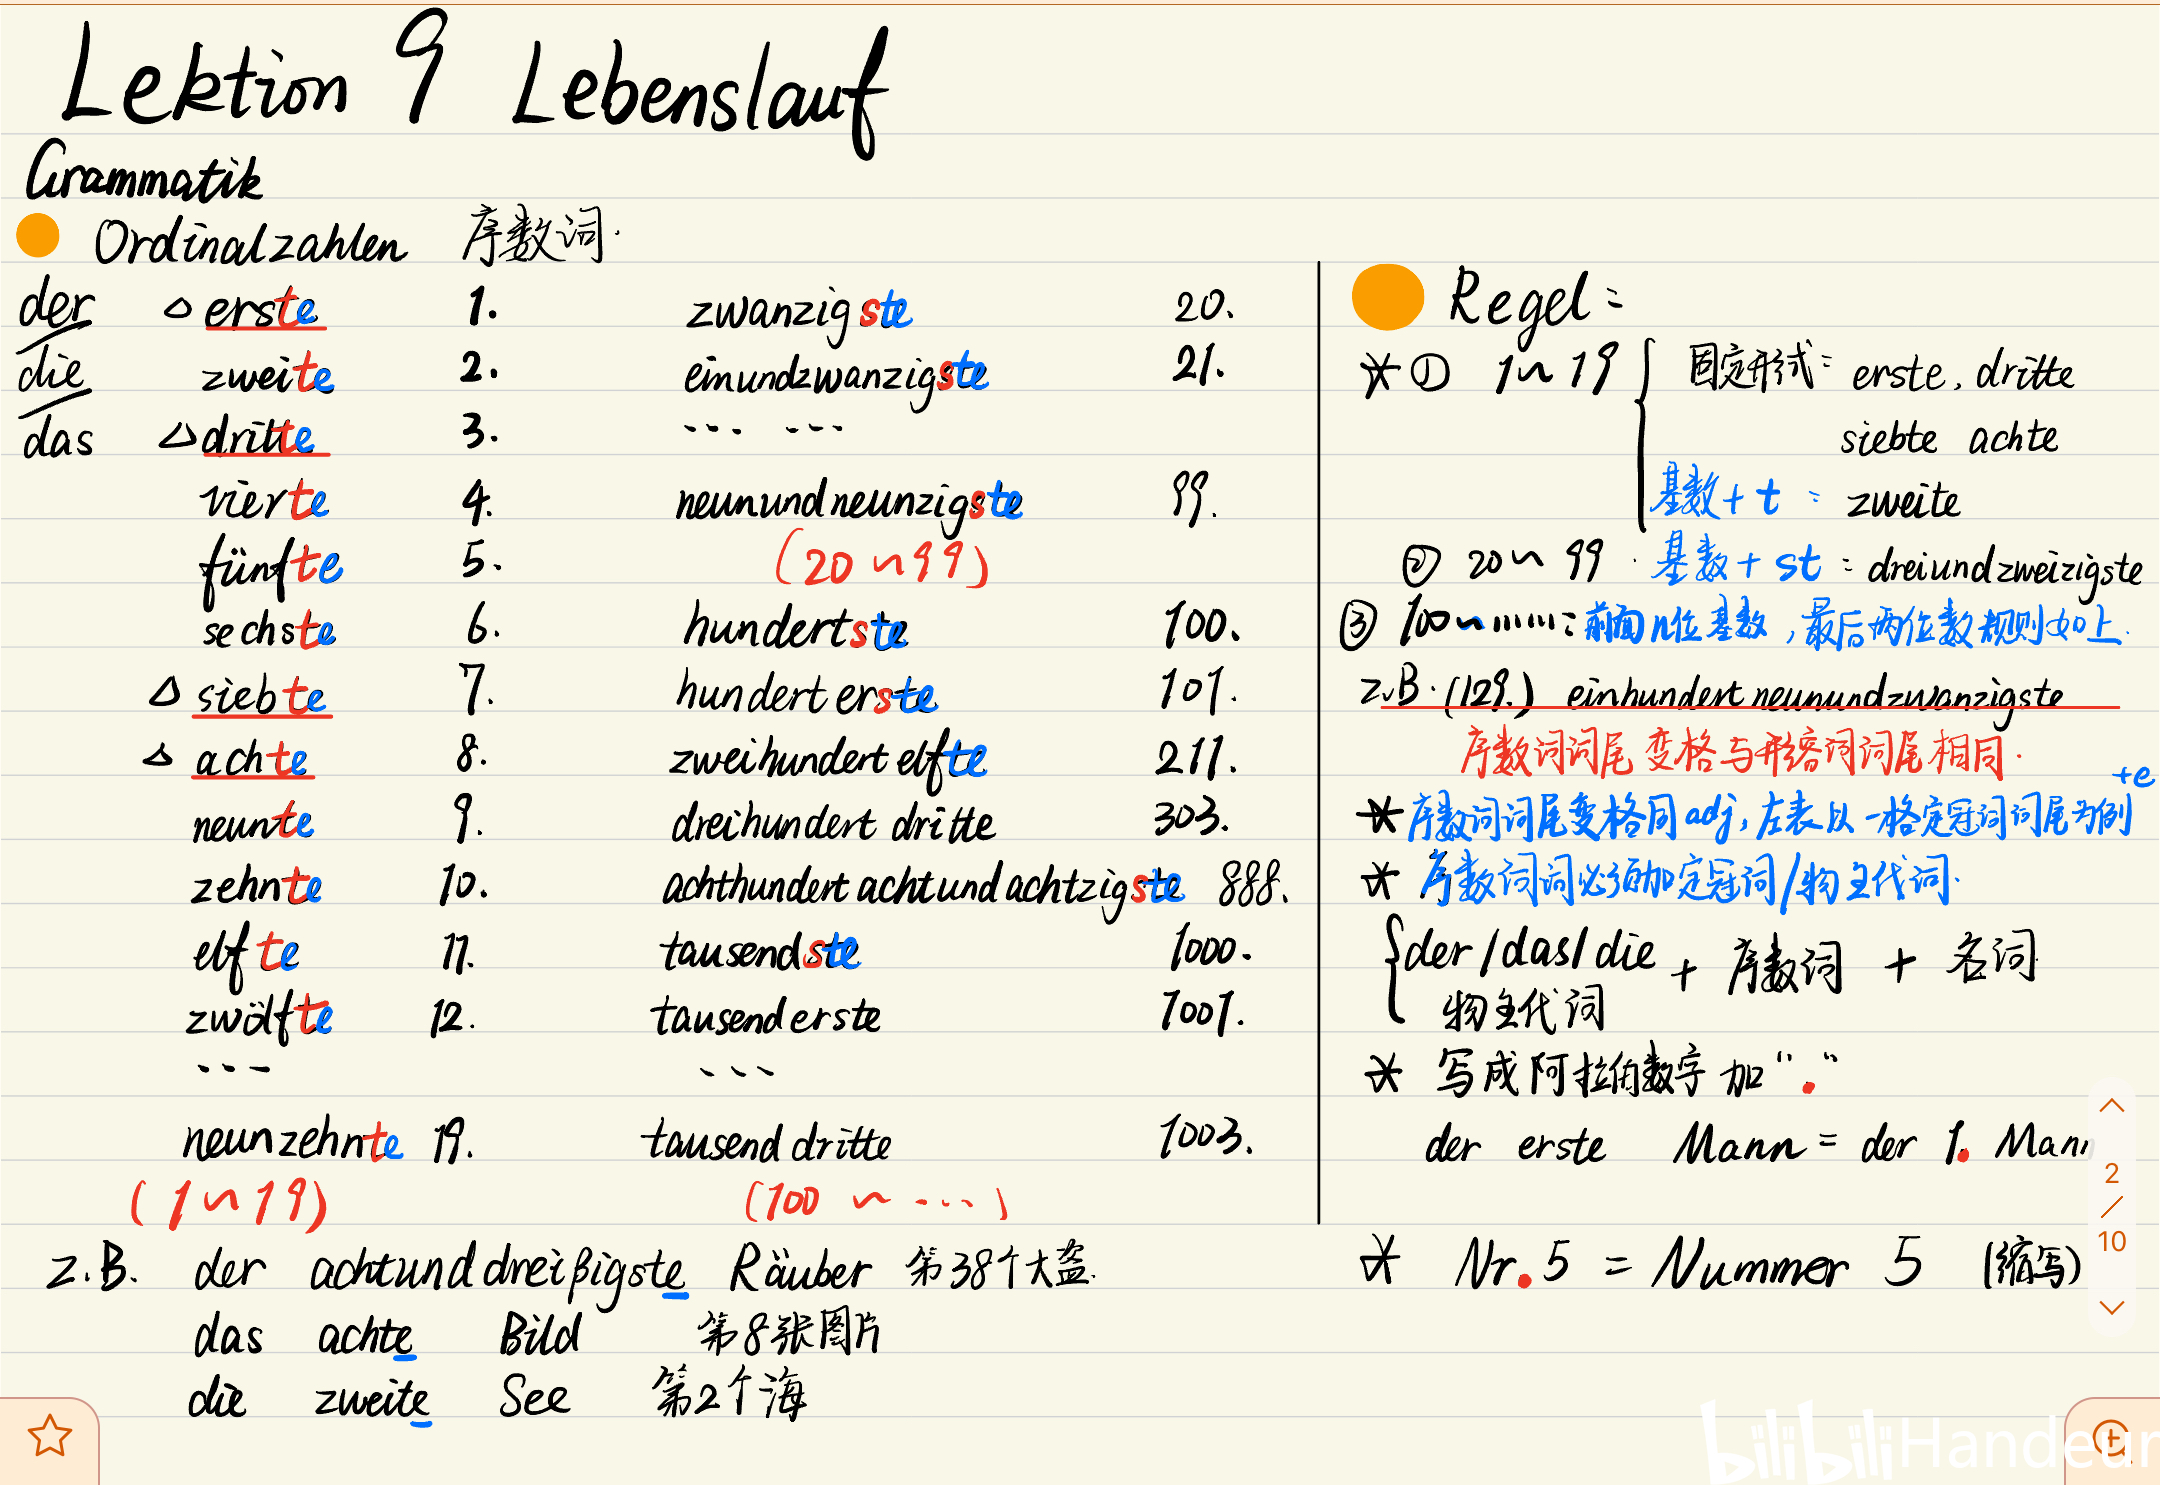 Lektion 9 Lebenslauf
Grammatik
Ordinalzahlen 序数词.
der △ erste 1. zwanzigste 20.
die zweite 2. einundzwanzigste 21.
das △ dritte 3. ... ...
vierte 4. neunundneunzigste 99.
fünfte 5. (20~99)
sechste 6. hundertste 100.
△ siebte 7. hundert erste 101.
△ achte 8. zweihundert elfte 211.
neunte 9. dreihundert dritte 303.
zehnte 10. achthundert achtundachtzigste 888.
elfte 11. tausendste 1000.
zwölfte 12. tausend erste 1001.
... ...
neunzehnte 19. tausend dritte 1003.
(1~19) (100 ~ ...)
z.B. der achtunddreißigste Räuber 第38个大盗.
das achte Bild 第8张图片
die zweite See 第2个海
Regel:
* ① 1~19 { 固定形式: erste, dritte
siebte achte
基数+t: zweite
② 20~99. 基数+st: dreiundzweizigste
③ 100~......: 前面n位基数,最后两位数规则如上.
z.B. (129.) einhundert neunundzwanzigste
序数词词尾变格与形容词词尾相同.
+e
* 序数词词尾变格同adj,左表以一格定冠词词尾为例
* 序数词词必须加定冠词/物主代词.
{ der/das/die + 序数词 + 名词
物主代词
* 写成阿拉伯数字加"."
der erste Mann = der 1. Mann
* Nr.5 = Nummer 5 (缩写)
2
/
10
bilibili Handeur